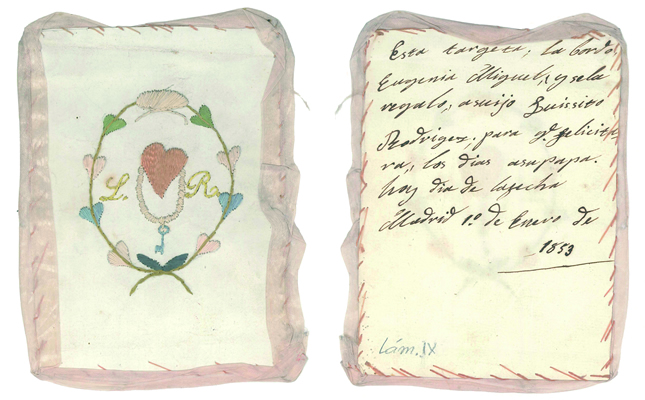 L. R.
Esta targeta, la bordo,
Eugenia Miguel, y se la
regalo, asuijo Luisito
Rodrigez, para q.e felicita
ra, los dias asupapa.
hoy dia de lafecha
Madrid 1.º de Enero de
1853
lám. IX